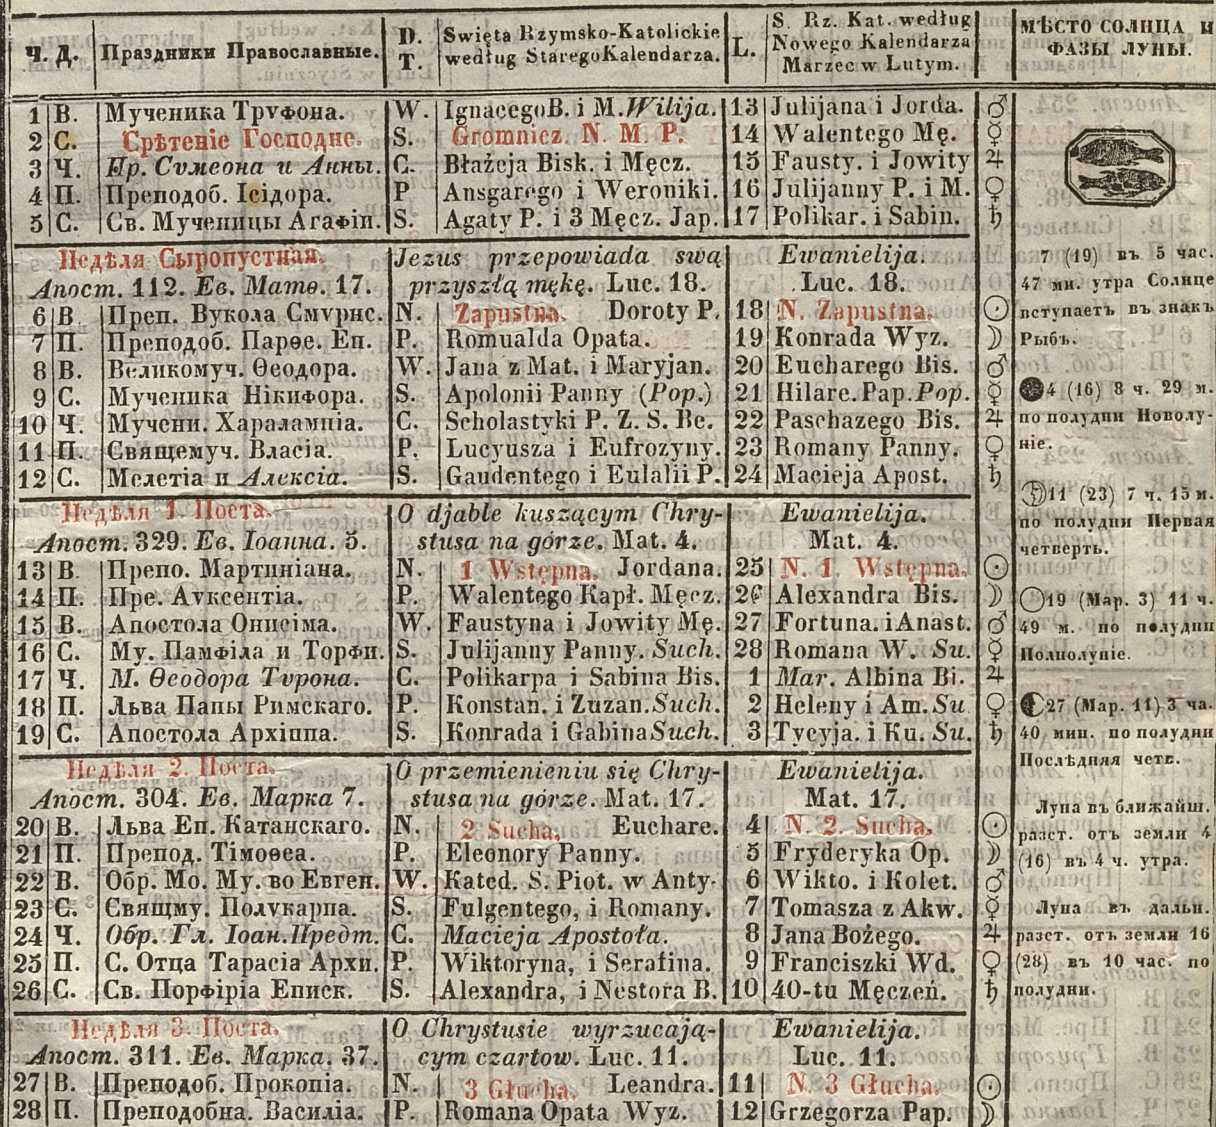 Ч. Д. Праздники Православные. D. T. Swięta Rzymsko-Katolickie według Starego Kalendarza. L. S. Rz. Kat. według Nowego Kalendarza Marzec w Lutym. МѢСТО СОЛНЦА И ФАЗЫ ЛУНЫ.
1 В. Мученика Трѵфона. W. Ignacego B. i M. Wilija. 13 Julijana i Jorda. ♂
2 С. Срѣтеніе Господне. S. Gromnicz. N. M. P. 14 Walentego Mę. ☿
3 Ч. Пр. Сѵмеона и Анны. C. Błażeja Bisk. i Męcz. 15 Fausty. i Jowity ♃
4 П. Преподоб. Ісідора. P Ansgarego i Weroniki. 16 Julijanny P. i M. ♀
5 С. Св. Мученицы Агафіи. S. Agaty P. i 3 Męcz. Jap. 17 Polikar. i Sabin. ♄
Недѣля Сыропустная. Jezus przepowiada swą Ewanielija.
Апост. 112. Ев. Матѳ. 17. przyszłą mękę. Luc. 18. Luc. 18.
6 В. Преп. Вукола Смѵрнс. N. Zapustna. Doroty P. 18 N. Zapustna. ☉
7 П. Преподоб. Парѳе. Еп. P. Romualda Opata. 19 Konrada Wyz. ☽
8 В. Великомуч. Ѳеодора. W. Jana z Mat. i Maryjan. 20 Eucharego Bis. ♂
9 С. Мученика Нікифора. S. Apolonii Panny (Pop.) 21 Hilare. Pap. Pop. ☿
10 Ч. Мучени. Харалампіа. C. Scholastyki P. Z. S. Be. 22 Paschazego Bis. ♃
11 П. Священмуч. Власіа. P. Lucyusza i Eufrozyny. 23 Romany Panny. ♀
12 С. Мелетіа и Алексіа. S. Gaudentego i Eulalii P. 24 Macieja Apost. ♄
Недѣля 1. Поста. O djable kuszącym Chry- Ewanielija.
Апост. 329. Ев. Іоанна. 5. stusa na górze. Mat. 4. Mat. 4.
13 В. Препо. Мартиніана. N. 1 Wstępna. Jordana. 25 N. 1. Wstępna. ☉
14 П. Пре. Аѵксентіа. P. Walentego Kapł. Męcz. 26 Alexandra Bis. ☽
15 В. Апостола Онисіма. W. Faustyna i Jowity Mę. 27 Fortuna. i Anast. ♂
16 С. Му. Памфіла и Торфи. S. Julijanny Panny. Such. 28 Romana W. Su. ☿
17 Ч. М. Ѳеодора Тѵрона. C. Polikarpa i Sabina Bis. 1 Mar. Albina Bi. ♃
18 П. Льва Папы Римскаго. P. Konstan. i Zuzan. Such. 2 Heleny i Am. Su ♀
19 С. Апостола Архіппа. S. Konrada i Gabina Such. 3 Tycyja. i Ku. Su. ♄
Недѣля 2. Поста. O przemienieniu się Chry- Ewanielija.
Апост. 304. Ев. Марка 7. stusa na górze. Mat. 17. Mat. 17.
20 В. Льва Еп. Катанскаго. N. 2 Sucha, Euchare. 4 N. 2. Sucha, ☉
21 П. Препод. Тімоѳеа. P. Eleonory Panny. 5 Fryderyka Op. ☽
22 В. Обр. Мо. Му. во Евген. W. Kated. S. Piot. w Anty- 6 Wikto. i Kolet. ♂
23 С. Свящму. Полѵкарпа. S. Fulgentego, i Romany. 7 Tomasza z Akw. ☿
24 Ч. Обр. Гл. Іоан. Предт. C. Macieja Apostoła. 8 Jana Bożego. ♃
25 П. С. Отца Тарасіа Архи. P. Wiktoryna, i Serafina. 9 Franciszki Wd. ♀
26 С. Св. Порфіріа Еписк. S. Alexandra, i Nestora B. 10 40-tu Męczeń. ♄
Недѣля 3. Поста. O Chrystusie wyrzucają- Ewanielija.
Апост. 311. Ев. Марка. 37. cym czartow. Luc. 11. Luc. 11.
27 В. Преподоб. Прокопіа. N. 3 Głucha. Leandra. 11 N. 3 Głucha. ☉
28 П. Преподобна. Василіа. P. Romana Opata Wyz. 12 Grzegorza Pap. ☽
7 (19) въ 5 час.
47 ми. утра Солнце
вступаетъ въ знакъ
Рыбъ.
4 (16) 8 ч. 29 м.
по полудни Новолу-
ніе.
11 (23) 7 ч. 15 м.
по полудни Первая
четверть.
19 (Мар. 3) 11 ч.
49 м. по полудни
Полнолуніе.
27 (Мар. 11) 3 ча.
40 мин. по полудни
Послѣдняя четв.
Луна въ ближайш.
разст. отъ земли 4
(16) въ 4 ч. утра.
Луна въ дальн.
разст. отъ земли 16
(28) въ 10 час. по
полудни.